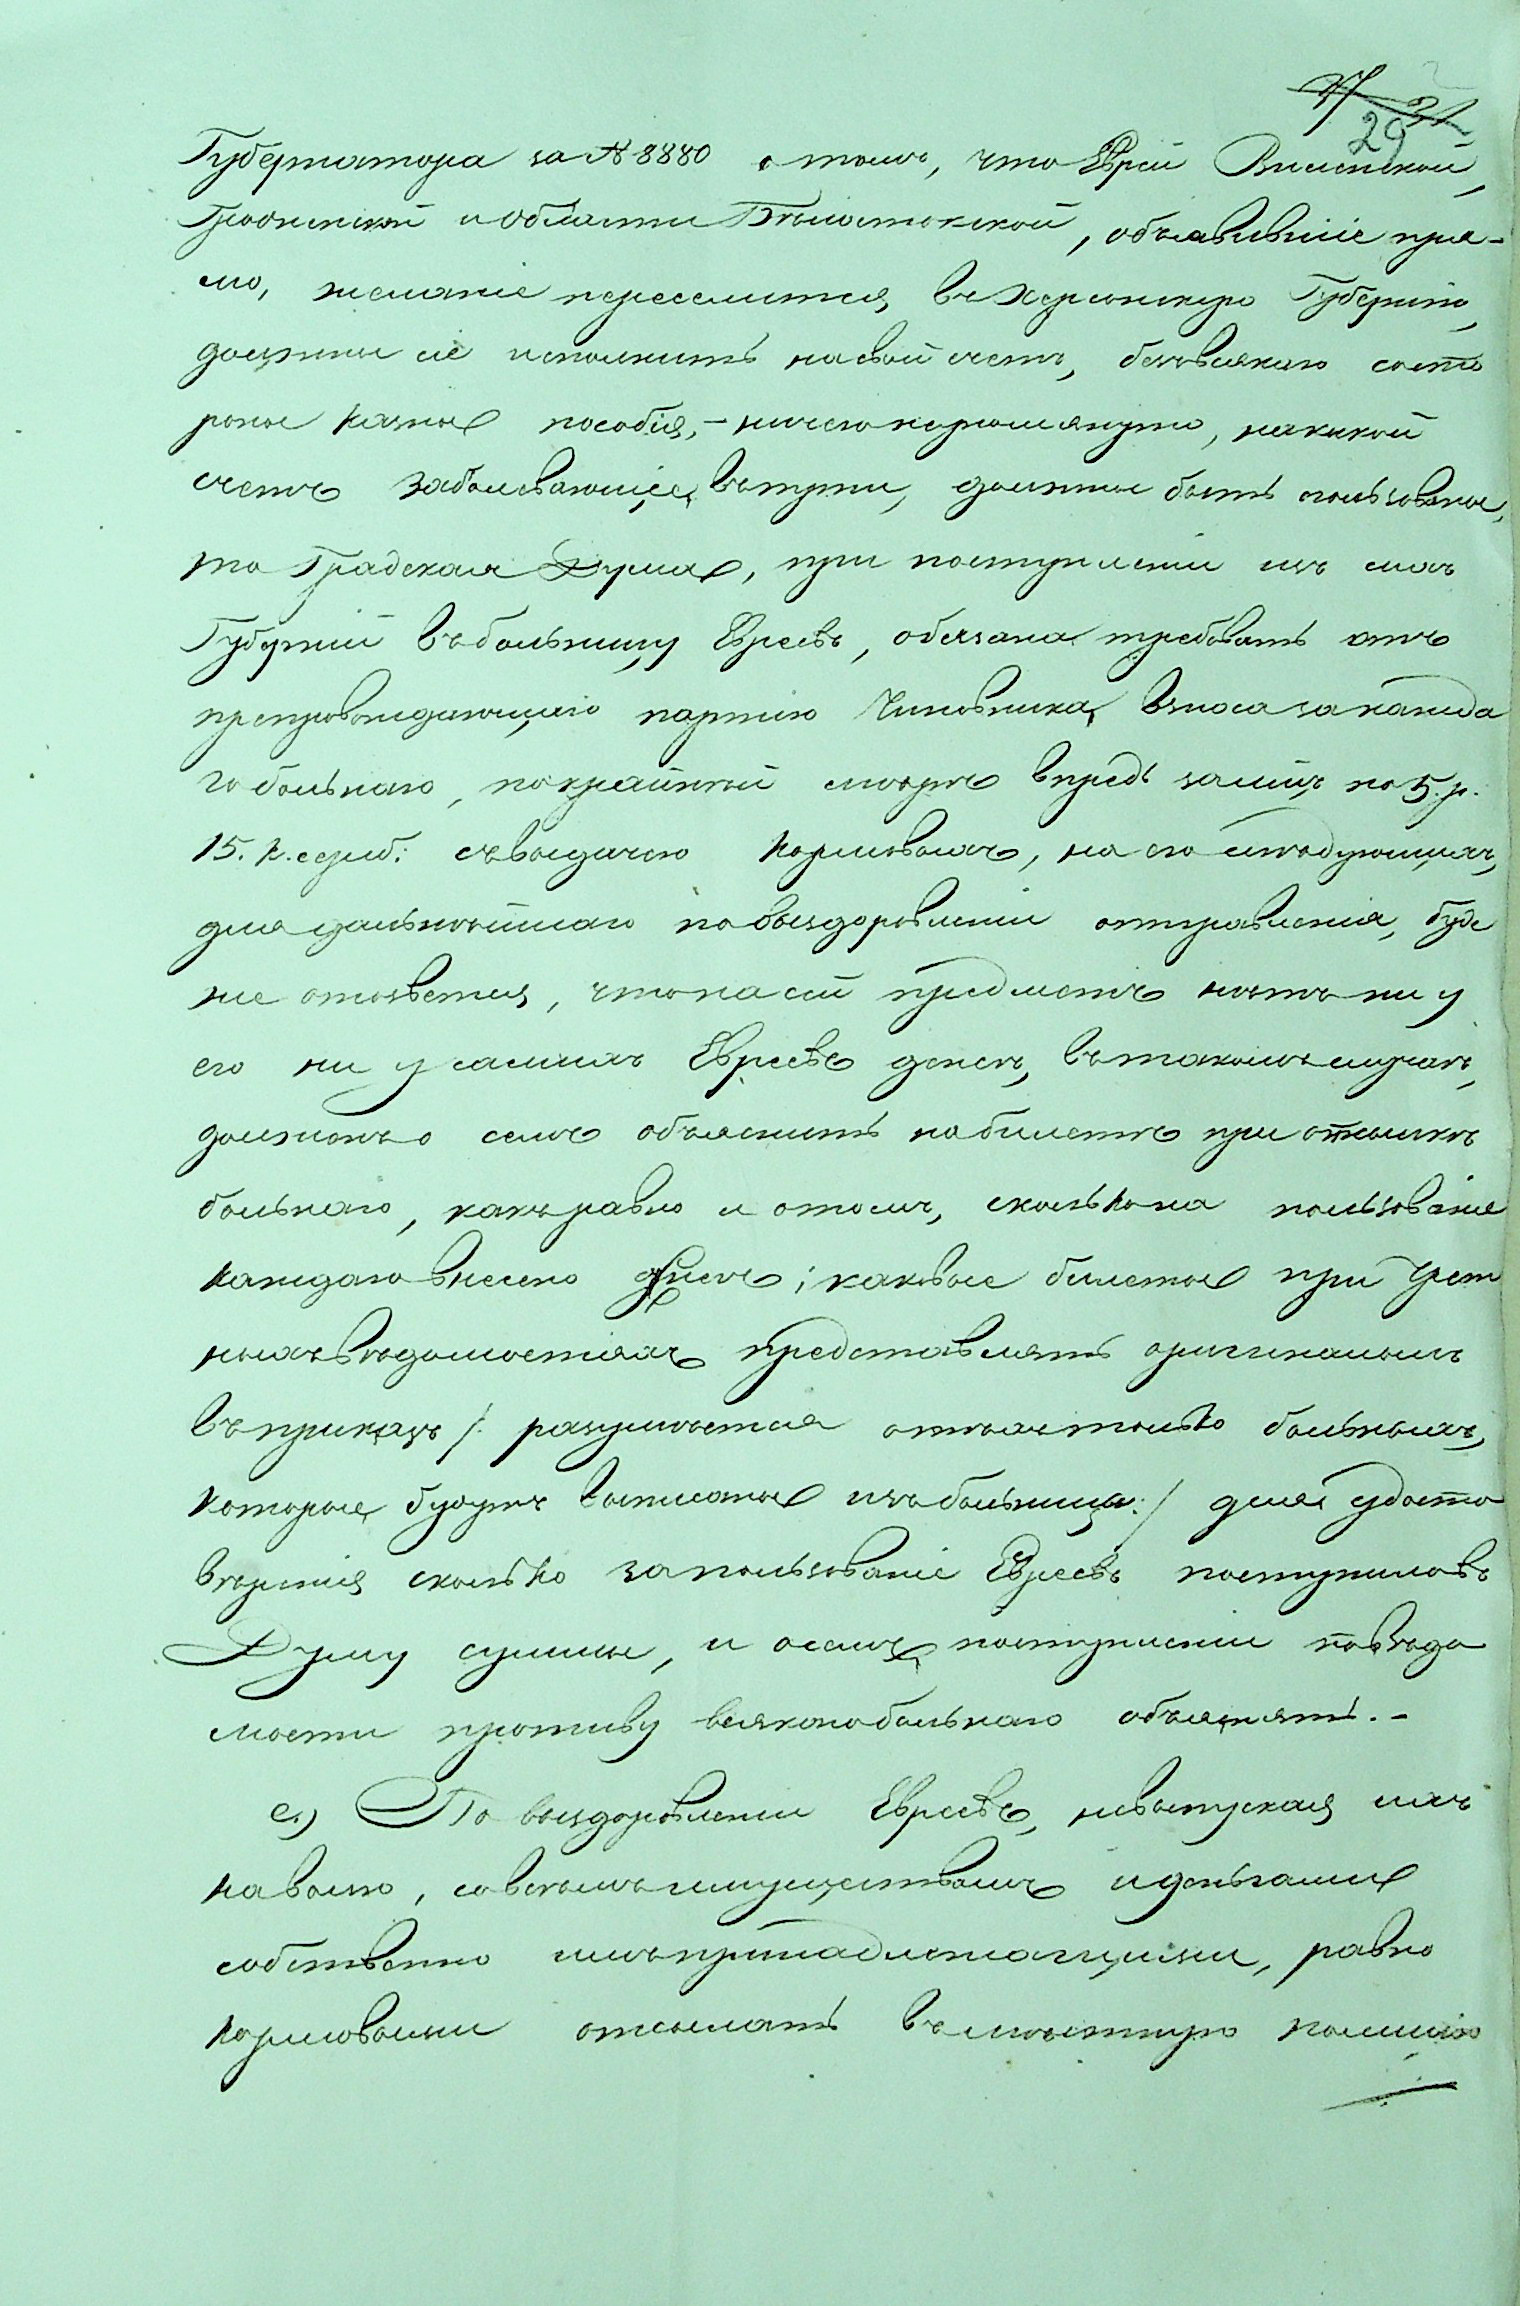 29
Губернатора за № 8880 о томъ, что Евреи Виленской,
Гродненской и Области Бѣлостокской, объявившіе пря-
мо, желаніе переселится, въ Херсонскую Губернію,
должны сіе исполнить на свой счетъ, безъ всякаго состо
роны казны пособія, – ничего не упомянуто, на какой
счетъ заболевающіе, въ пути, должны быть пользованы,
то Градская Дума, при поступленіи изъ сихъ
Губерній въ больницу Евреевъ, обязана требовать отъ
препровождающаго партію Чиновника, взноса за кажда
го больнаго, по крайней мѣрѣ впредь за мѣц. по 5. р.
15. к. сереб: съ выдачею кормовыхъ, на его слѣдующихъ,
для дальнѣйшаго по выздоровленіи отправленія, буде
же отзовется, что на сей предметъ нѣтъ ни у
его ни у самихъ Евреевъ денегъ, въ такомъ случаѣ,
долженъ о семъ объяснить на билетѣ при отсылкѣ
больнаго, какъ равно и о томъ, сколько на пользованіе
каждаго внесено денегъ; каковые билеты при Учет
ныхъ вѣдомостяхъ представлять оригиналомъ
въ приказъ /: разумѣется о тѣхъ только больныхъ,
которые будутъ выписаны изъ больницы :/ для удосто
вѣренія сколько за пользованіе Евреевъ поступило въ
Думу суммы, и о семъ поступленіи по вѣдо
мости противу всякаго больнаго объяснять. –
е.) По выздоровленіи Евреевъ, не выпуская ихъ
на волю, со всемъ имуществомъ и деньгами
собственно имъ принадлежащими, равно
кормовыми отсылать въ мѣстную полицію